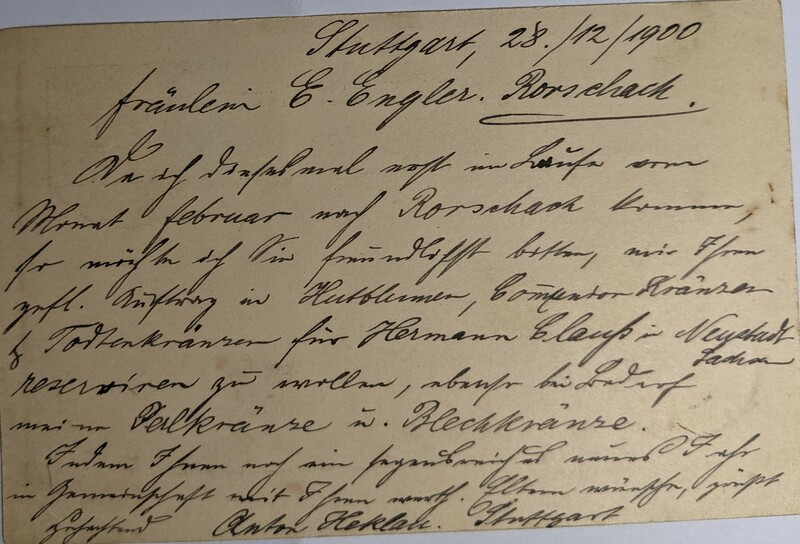 Stuttgart, 28./12/1900
Fräulein E. Engler. Rorschach.
Da ich diesesmal erst im Laufe vom
Monat Februar nach Rorschach komme,
so möchte ich Sie freundlichst bitten, mir Ihren
gefl. Auftrag in Hutblumen, Kränzen
& Todtenkränzen für Hermann Clauß in Neustadt
Sachsen
reserviren zu wollen, ebenso bei Bedarf
meine Perlkränze u. Blechkränze.
Indem Ihnen noch ein segensreiches neues Jahr
in Gemeinschaft mit Ihren werth. Eltern wünsche, grüßt
Anton Stuttgart